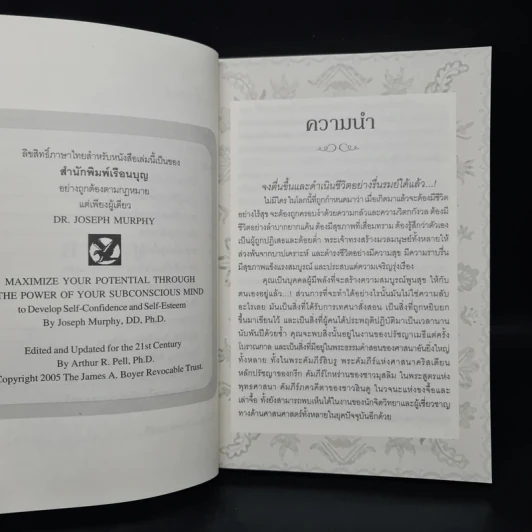 ลิขสิทธิ์ภาษาไทยสำหรับหนังสือเล่มนี้เป็นของ
สำนักพิมพ์เรือนบุญ
อย่างถูกต้องตามกฎหมาย
แต่เพียงผู้เดียว
DR. JOSEPH MURPHY
MAXIMIZE YOUR POTENTIAL THROUGH
THE POWER OF YOUR SUBCONSCIOUS MIND
to Develop Self-Confidence and Self-Esteem
By Joseph Murphy, DD, Ph.D.
Edited and Updated for the 21st Century
By Arthur R. Pell, Ph.D.
Copyright 2005 The James A. Boyer Revocable Trust.
ความนำ
จงตื่นขึ้นและดำเนินชีวิตอย่างรื่นรมย์ได้แล้ว...!
ไม่มีใคร ในโลกนี้ที่ถูกกำหนดมาว่า เมื่อเกิดมาแล้วจะต้องมีชีวิต
อย่างไร้สุข จะต้องถูกครอบงำด้วยความกลัวและความวิตกกังวล ต้องมี
ชีวิตอย่างลำบากยากแค้น ต้องมีสุขภาพที่เสื่อมทราม ต้องรู้สึกว่าตัวเอง
เป็นผู้ถูกปฏิเสธและด้อยค่ำ พระเจ้าทรงสร้างมวลมนุษย์ทั้งหลายให้
ล่วงพ้นจากบาปเคราะห์ และดำรงชีวิตอย่างมีความสุข มีความราบรื่น
มีสุขภาพแข็งแรงสมบูรณ์ และประสบแต่ความเจริญรุ่งเรือง
คุณเป็นบุคคลผู้มีพลังที่จะสร้างความสมบูรณ์พูนสุข ให้กับ
ตนเองอยู่แล้ว...! ส่วนการที่จะทำได้อย่างไรนั้นมันไม่ใช่ความลับ
อะไรเลย มันเป็นสิ่งที่ได้รับการเทศนาสั่งสอน เป็นสิ่งที่ถูกหยิบยก
ขึ้นมาเขียนไว้ และเป็นสิ่งที่ผู้คนได้ประพฤติปฏิบัติมาเป็นเวลานาน
นับพันปีด้วยซ้ำ คุณจะพบสิ่งนั้นอยู่ในงานของปรัชญาเมธีแต่ครั้ง
โบราณกาล และเป็นสิ่งที่มีอยู่ในพระธรรมคำสอนของศาสนาอันยิ่งใหญ่
ทั้งหลาย ทั้งในพระคัมภีร์ฮิบรู พระคัมภีร์แห่งศาสนาคริสเตียน
หลักปรัชญาของกรีก คัมภีร์โกหร่านของชาวมุสลิม ในพระสูตรแห่ง
พุทธศาสนา คัมภีร์ภควคีตาของชาวฮินดู ในวจนะแห่งของจื้อและ
เล่าจื้อ ทั้งยังสามารถพบเห็นได้ในงานของนักจิตวิทยาและผู้เชี่ยวชาญ
ทางด้านศาสนศาสตร์ทั้งหลายในยุคปัจจุบันอีกด้วย